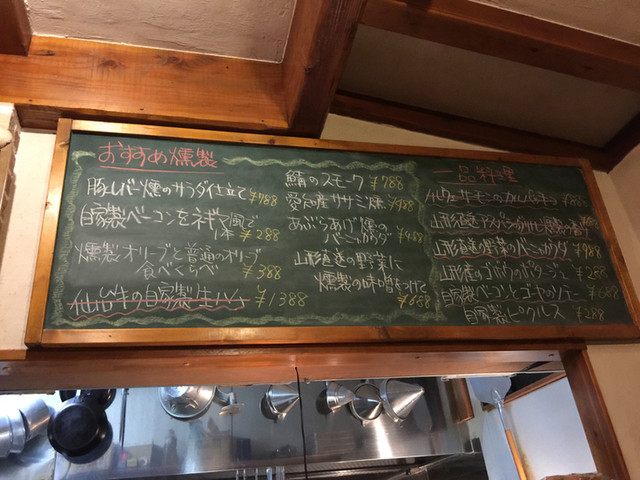 おすすめ燻製
豚レバー燻のサラダ仕立て ¥788
自家製ベーコンをネギマ風で
1本 ¥288
燻製オリーブと普通のオリーブ
食べくらべ ¥388
仙台牛の自家製生ハム ¥1388
鯖のスモーク ¥788
ササミ燻
あぶらあげ燻の
バーニャカウダ ¥488
山形直送の野菜に
燻製の味噌をつけて ¥688
一品料理
山形直送
山形直送の野菜のバーニャカウダ ¥988
山形産のゴボウのポタージュ ¥288
自家製ベーコンとゴーヤの
自家製ピクルス ¥288